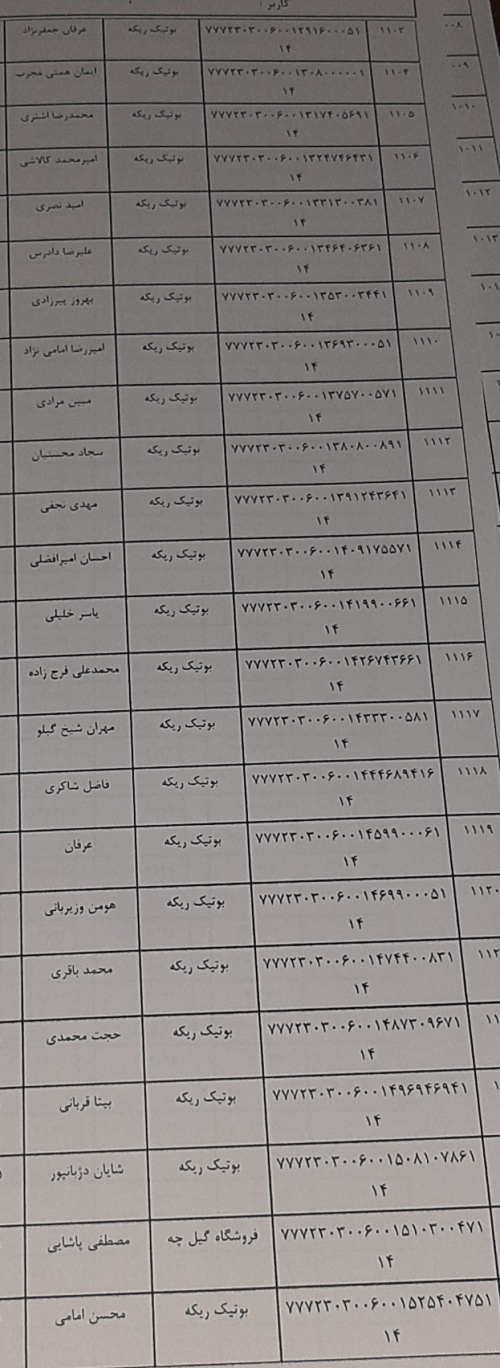 کاربر :
۰۰۸
۱۱۰۳ ۷۷۷۲۳۰۳۰۰۶۰۰۱۲۹۱۶۰۰۰۵۱ بوتیک ریکه عرفان جعفرنژاد
۱۴
۰۰۹
۱۱۰۴ ۷۷۷۲۳۰۳۰۰۶۰۰۱۳۰۸۰۰۰۰۰۱ بوتیک ریکه ایمان همتی مجرب
۱۴
۱۰۱۰
۱۱۰۵ ۷۷۷۲۳۰۳۰۰۶۰۰۱۳۱۷۴۰۵۶۹۱ بوتیک ریکه محمدرضا اشتری
۱۴
۱۰۱۱
۱۱۰۶ ۷۷۷۲۳۰۳۰۰۶۰۰۱۳۲۴۷۴۶۴۳۱ بوتیک ریکه امیرمحمد کالاشی
۱۴
۱۰۱۲
۱۱۰۷ ۷۷۷۲۳۰۳۰۰۶۰۰۱۳۳۱۳۰۰۳۸۱ بوتیک ریکه امید نصری
۱۴
۱۰۱۳
۱۱۰۸ ۷۷۷۲۳۰۳۰۰۶۰۰۱۳۴۶۴۰۶۳۶۱ بوتیک ریکه علیرضا دادرس
۱۴
۱۱۰۹ ۷۷۷۲۳۰۳۰۰۶۰۰۱۳۵۳۰۰۳۴۴۱ بوتیک ریکه بهروز پیرزادی
۱۴
۱۱۱۰ ۷۷۷۲۳۰۳۰۰۶۰۰۱۳۶۹۳۰۰۰۵۱ بوتیک ریکه امیررضا امامی نژاد
۱۴
۱۱۱۱ ۷۷۷۲۳۰۳۰۰۶۰۰۱۳۷۵۷۰۰۵۷۱ بوتیک ریکه مبین مرادی
۱۴
۱۱۱۲ ۷۷۷۲۳۰۳۰۰۶۰۰۱۳۸۰۸۰۰۸۹۱ بوتیک ریکه سجاد محسنیان
۱۴
۱۱۱۳ ۷۷۷۲۳۰۳۰۰۶۰۰۱۳۹۱۲۴۳۶۴۱ بوتیک ریکه مهدی نجفی
۱۴
۱۱۱۴ ۷۷۷۲۳۰۳۰۰۶۰۰۱۴۰۹۱۷۵۵۷۱ بوتیک ریکه احسان امیرافضلی
۱۴
۱۱۱۵ ۷۷۷۲۳۰۳۰۰۶۰۰۱۴۱۹۹۰۰۶۶۱ بوتیک ریکه یاسر خلیلی
۱۴
۱۱۱۶ ۷۷۷۲۳۰۳۰۰۶۰۰۱۴۲۶۷۴۳۶۶۱ بوتیک ریکه محمدعلی فرج زاده
۱۴
۱۱۱۷ ۷۷۷۲۳۰۳۰۰۶۰۰۱۴۳۳۳۰۰۵۸۱ بوتیک ریکه مهران شیخ گیلو
۱۴
۱۱۱۸ ۷۷۷۲۳۰۳۰۰۶۰۰۱۴۴۴۶۸۹۴۱۶ بوتیک ریکه فاضل شاکری
۱۴
۱۱۱۹ ۷۷۷۲۳۰۳۰۰۶۰۰۱۴۵۹۹۰۰۰۶۱ بوتیک ریکه عرفان
۱۴
۱۱۲۰ ۷۷۷۲۳۰۳۰۰۶۰۰۱۴۶۹۹۰۰۰۵۱ بوتیک ریکه هومن وزیربانی
۱۴
۷۷۷۲۳۰۳۰۰۶۰۰۱۴۷۴۴۰۰۸۳۱ بوتیک ریکه محمد باقری
۱۴
۷۷۷۲۳۰۳۰۰۶۰۰۱۴۸۷۳۰۹۶۷۱ بوتیک ریکه حجت محمدی
۱۴
۷۷۷۲۳۰۳۰۰۶۰۰۱۴۹۶۹۴۶۹۴۱ بوتیک ریکه بیتا قربانی
۱۴
۷۷۷۲۳۰۳۰۰۶۰۰۱۵۰۸۱۰۷۸۶۱ بوتیک ریکه شایان دژبانپور
۱۴
۷۷۷۲۳۰۳۰۰۶۰۰۱۵۱۰۳۰۰۴۷۱ فروشگاه گیل چه مصطفی پاشایی
۱۴
۷۷۷۲۳۰۳۰۰۶۰۰۱۵۲۵۴۰۴۷۵۱ بوتیک ریکه محسن امامی
۱۴